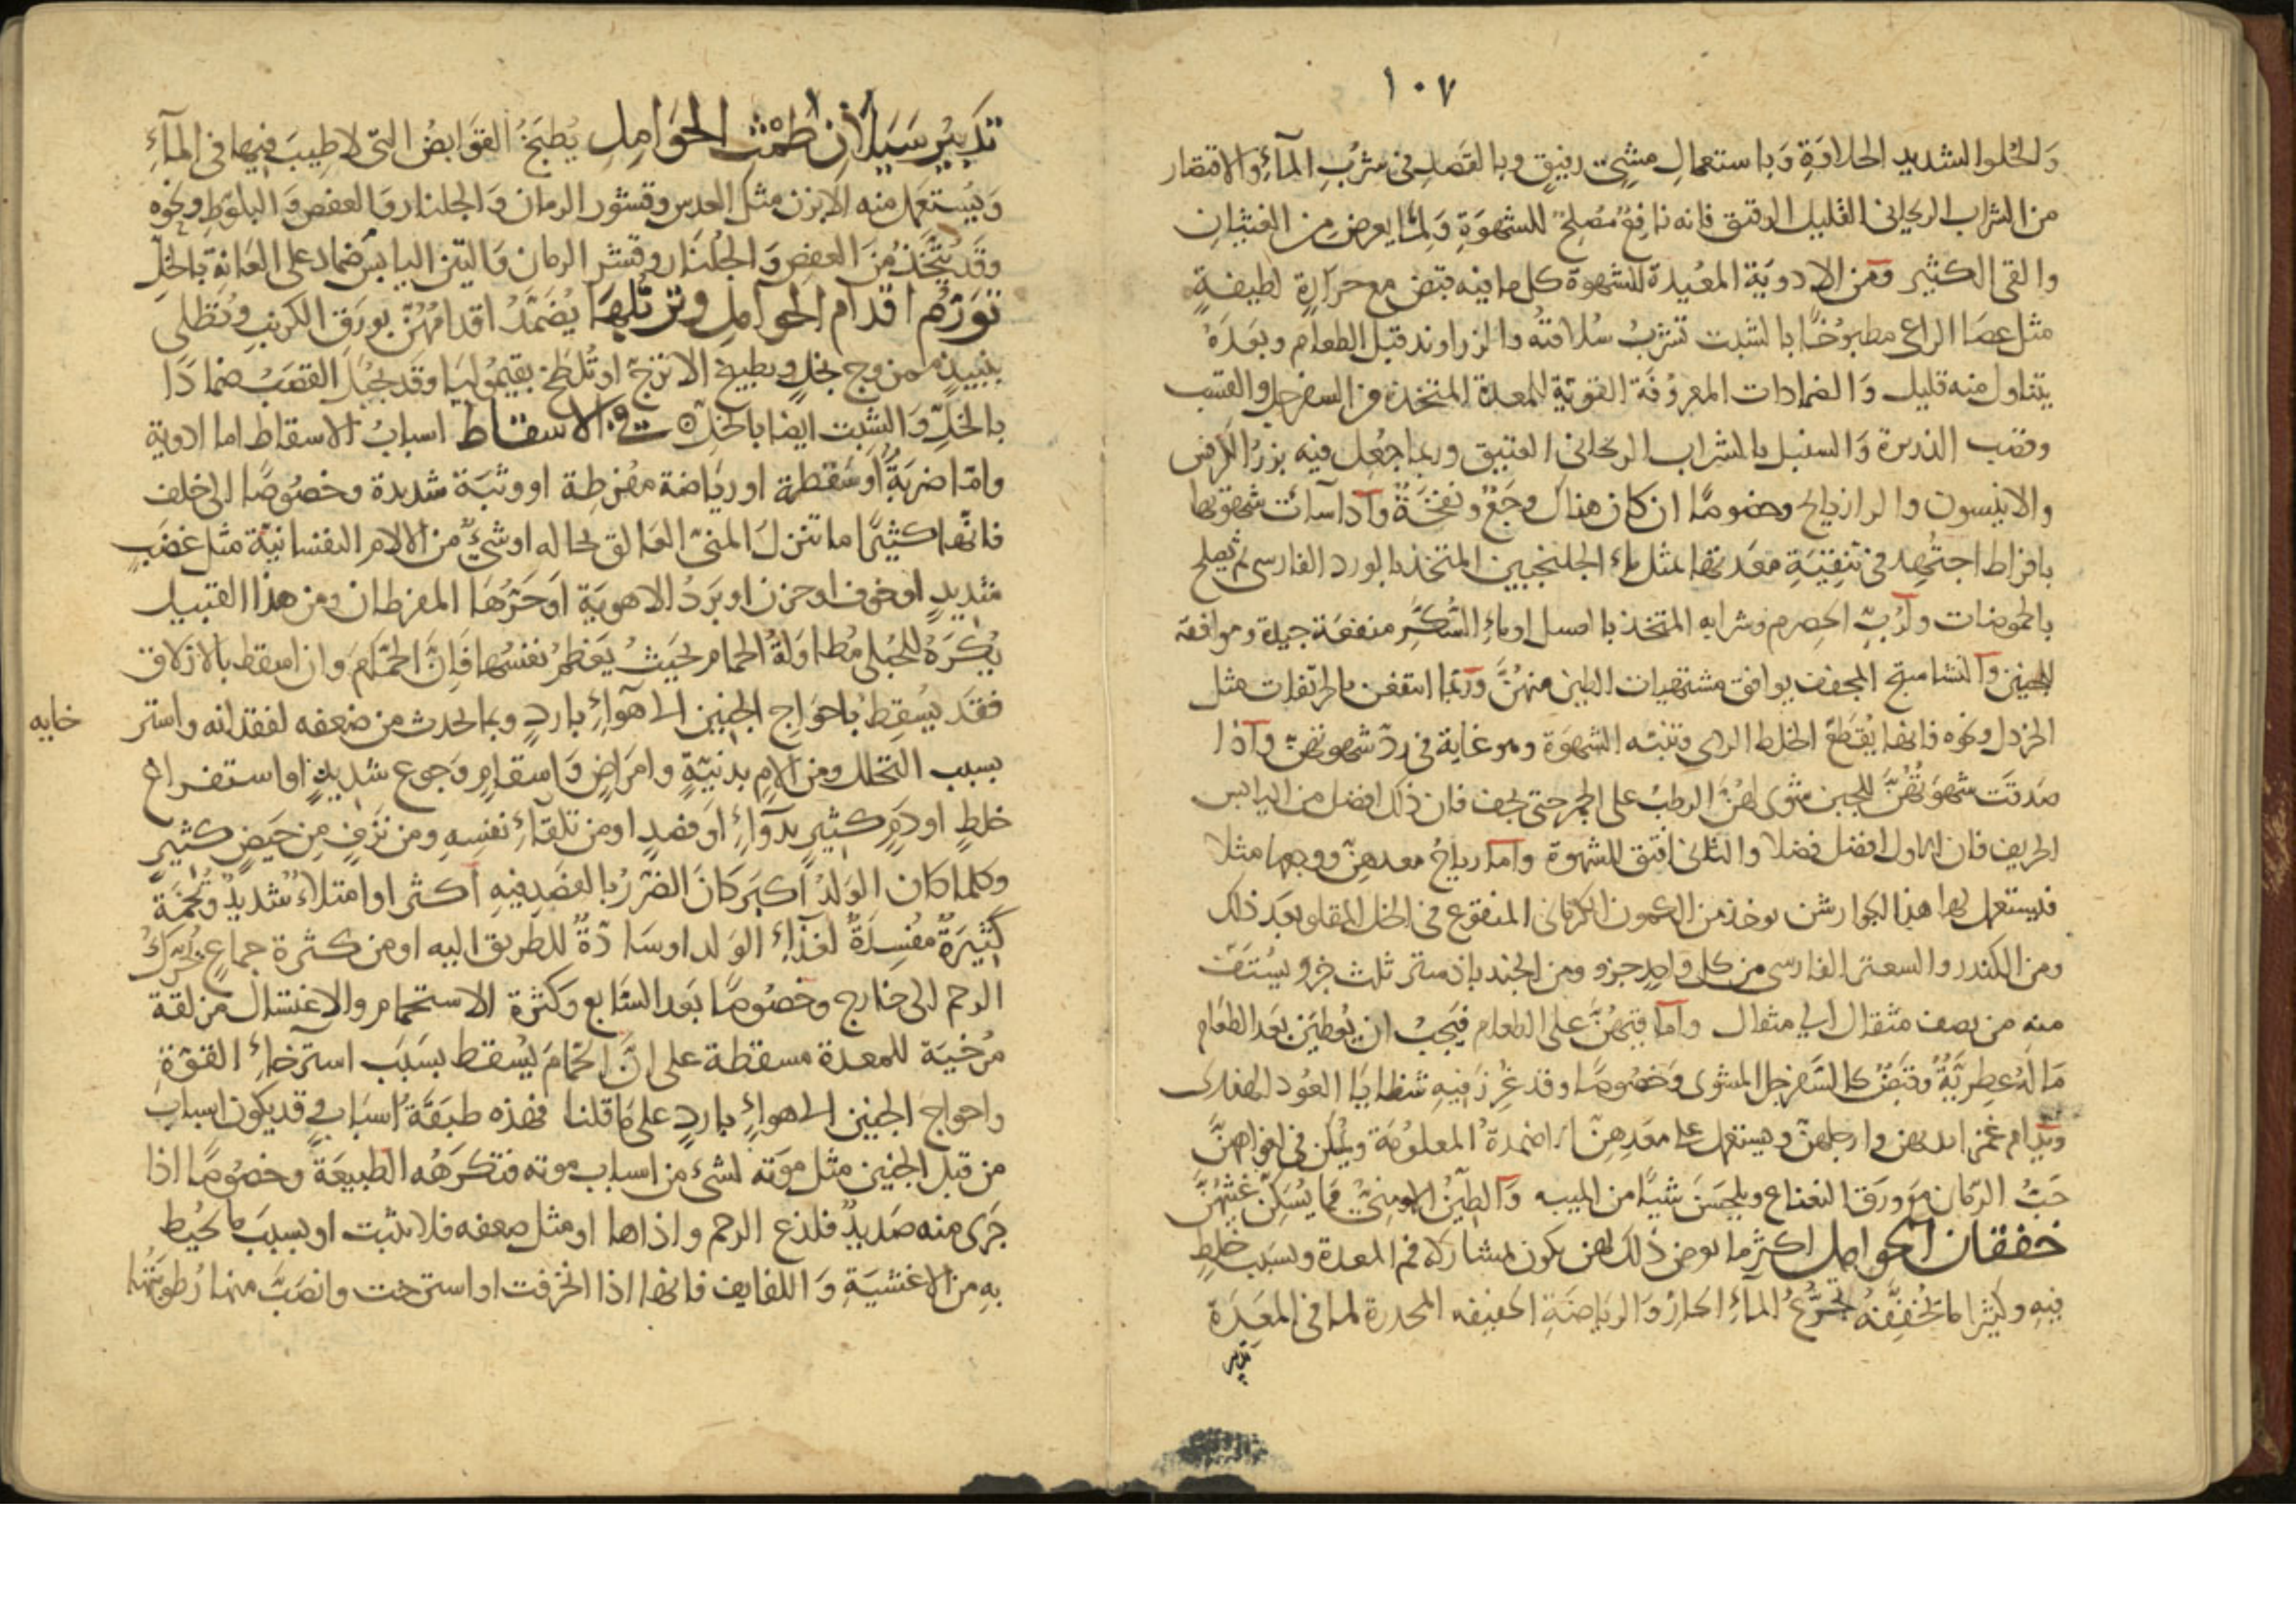 ١٠٧
وَالحُلو الشديدِ الحلاوَةِ وَباستعمالِ مشيٍ رفيقٍ وبالقَصدِ في شربِ المآءِ وَالاقتصار
من الشراب الريحاني القليل الرقيق فانه نافعٌ مُصلحٌ للشهوَةِ وَلما يعرض من الغثيان
والقى الكثير ومن الادويَة المعُيدة للشهوة كل ما فيه قبض مع حرارةٍ لطيفةٍ
مثل عصَا الراعى مطبوُخًا بالشبت تشربُ سُلاقتهُ والزراوند قبل الطعام وبعَدَهُ
يتناول منه قليل وَالضمادات المعروُفَة القوّية للمعدة المتخذة من السفرجل والقسب
وقصب الذريرة وَالسنبل بالشراب الريحاني العتيق وربما جُعِل فيه بزر الكرفس
والانيسون والرازيانج وخصوصًا ان كان هناك وجَعٌ ونفخَةٌ وآذا سآت شهوتها
بافراط اجتُهِد في تنقيَةِ معَدتها بمثل ماء الجلنجبين المتخذ بالورد الفارسى ثم يصلح
بالحموضات وآرُبِّ الحصرم وشرابه المتخذ بالعسل اوماءِ السُّكّر منفعَة جيدة وموافقه
للجنين وآلنشاستج المجفف يوافق مشتهيات الطين منهُنَّ ورَبما انتفعن بالحريفات مثل
الخردل ونحوه فانها يُقطّع الخلط الردى وتنبّه الشهَوَة وهو غاية في ردّ شهوتهن وآذا
صَدقَت شهوَتهُنَّ للجبن شوى لهنَّ الرطبُ على الجمر حتى يجف فان ذلك افضل من اليابس
الحريف فان الاول افضل فضلا والثانى افتق للشهوة وآما رياحُ معدهنّ ووجعها مثلا
فليستعمل لها هذا الجوارشن يوخذ من الكمون الكرمانى المنقوع في الخل المقلو بعَد ذلك
ومن الكندر والسعتر الفارسى من كل واحدٍ جزو ومن الجندباذستر ثلث جزو يُستَفّ
منه من نصف مثقال الى مثقال وآما قيهُنَّ على الطعام فيَجبُ ان يُعطَين بعَد الطعام
مَا لَهُ عطريّةٌ وَقبَضٌ كالسَفرجل المشوى وَخصُوصًا وقد غُرزَ فيه شظايَا العُود الهندى
ويدام غمز ايديهن وارجلهنّ ويستعمل على معَدِهِنّ الاضمدةُ المعلوُمَة ويُمسَكن في افواههنَّ
حَبُّ الرمّان مع ورَق النعناع ويلحَسَن شيًا من الميبه وَآلطينُ الارمنىّ مما يسُكِنّ غَثيهُنَّ
خفقان الحوامل اكثر ما يعرض ذلك لهن يكون بمشاركة فم المعدة وبسَبب خلطٍ
فيهِ وكثيرا ما تخُفِّفهُ تجرّعُ المآءِ الحار وَالرياضَةِ الخفيفه المحدرة لما في المعِدَة
تدبير
تدَبيُر سَيَلان طمَث الحوَامِل يُطبَخُ القوَابضُ التى لا طيبَ فيها في المآءِ
وَيُستعَمل منه الابزن مثل العدس وقشور الرمان وَالجلنار وَالعفص وَالبلوّط ونحَوه
وقد يُتّخَذ مِنَ العفص وَالجُلنار وقشر الرمان وَالتين اليابس ضماد على العَانةِ بالخلّ
توَرّم اقدام الحوامل وترهّلها يُضَمّدُ اقدامُهنّ بورَق الكرنب وتُطلى
بنبيذٍ ممزوج بخلٍ وبطبيخ الاترجّ اوتُلطَخ بقيموُليا وقَد يجُعَل القصَبُ ضمادًا
بالخلِّ وَالشبت ايضا بالخل في الاسقاط اسبابُ الاسقاط اما ادوية
وامّا ضربَةٌ اوَسَقطة اورياضة مفُرطة اووثبَة شديدة وخصُوصًا الى خلف
فانها كثيًرا ما تنزلَ المنىّ العالق بحاله اوشيٌ من الالام النفسانيّة مثل غضَبٍ
شديدٍ اوخوف اوحزن اوبَردُ الاهويَة اوَحَرّهَا المفرطان ومن هذا القبيل
يُكرَهُ للحُبلى مُطاوَلةُ الحمام بحَيثُ يَعَظمُ نفسُها فَانَّ الحمّام وان اسقط بالازلاق
فقد يُسقِط باحوَاج الجنين الى هوآءٍ باردٍ وبما يحدث من ضعفه لفقدانه واستر
خايه
بسبب التحلل ومن الامِ بدنيّةٍ وامرَاضٍ وَاسقامٍ وَجوع شديدٍ او استفراغ
خلطٍ او دَمٍ كثيرٍ بدوآءٍ اوَفصدٍ اومن تلقآءِ نفسِهِ ومن نزفٍ من حَيضٍ كثيرٍ
وكلما كان الوَلدُ اكبر كَانَ الضّررُ بالفصَد فيهِ اكثر او امتلاءٍ شديدٌ وتُخمَة
كثيرَةٌ مفُسدَةٌ لغذآءِ الوَلد اوسَادّةٌ للطريق اليه اومن كثرة جماعٍ يُحرّكُ
الرحم الى خارج وخصُوصًا بعَد السّابع وكثرة الاستحمام والاغتسال مزلقة
مرُخيَة للمعدة مسقطة على انّ الحمّامَ يُسقط بسَبَب استرخآءِ القوّةِ
واحواج الجنين الى هوآءٍ باردٍ على مَا قلنا فهذه طبَقَةُ اسبَابٍ وقد يكون اسباب
من قبل الجنين مثل موَته لشئ من اسباب موته فتكرَهُه الطبيعَةُ وخصُوصًا اذا
جَرَى منه صَديدٌ فلذع الرحم واذاها اومثل ضعفه فلا يثبت اوبسببَ ما يُحيُط
بهِ من الاغشيَةِ وَاللفايف فانها اذا انخرقت او استرخت وانصَبّ منها رُطوباتُها